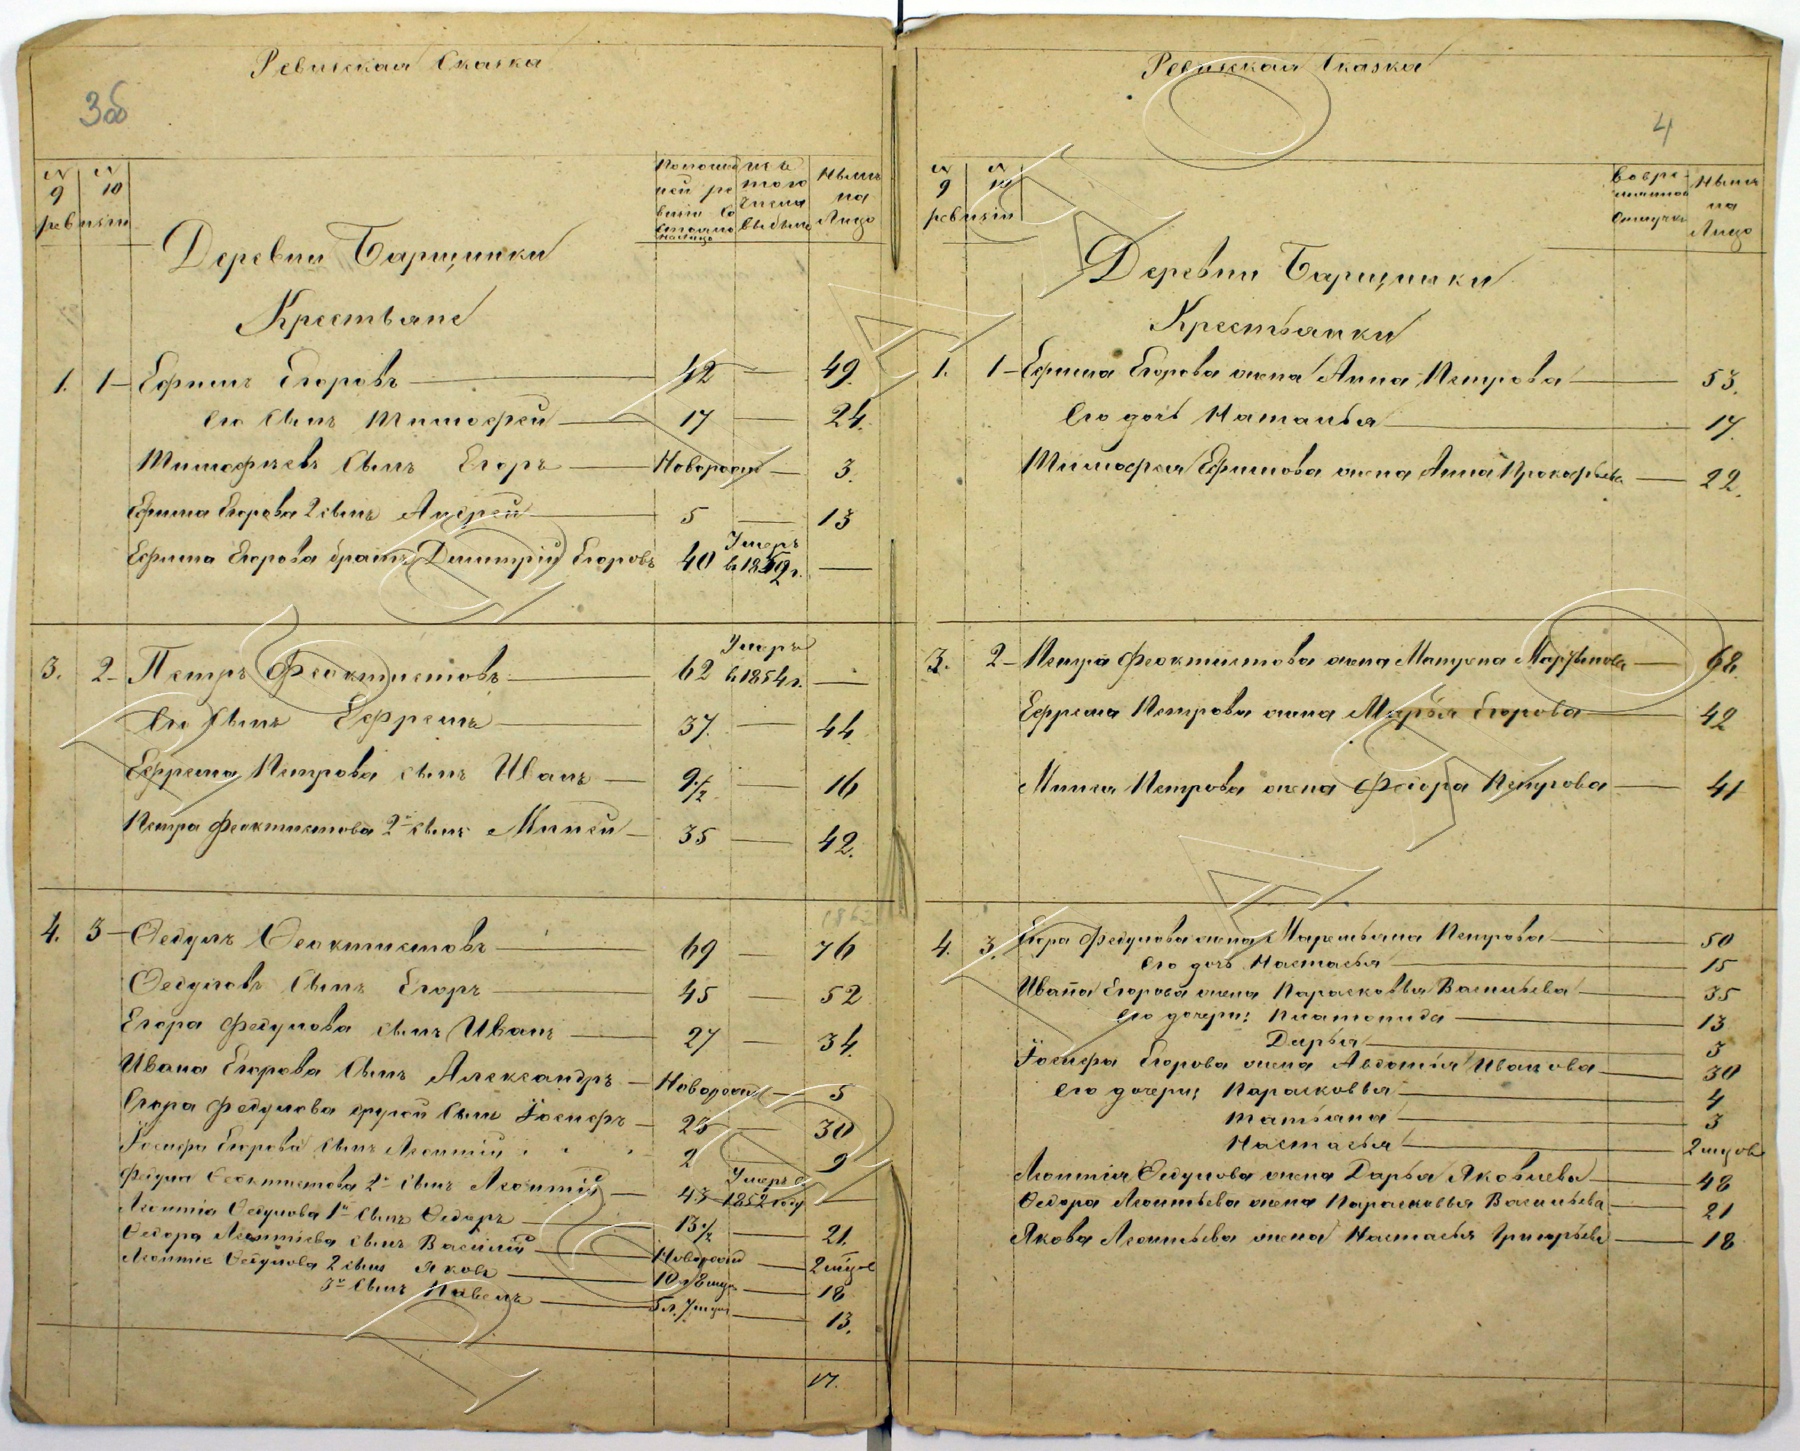 Ревизская Сказка
3об
№ 9 № 10
ревизіи
По последней ревизіи состояло налицо
Изъ того числа выбыло
Нынѣ на Лицо
Деревни Барщинки
Крестьяне
1. 1 Ефимъ Егоровъ 42 — 49.
Его Сынъ Тимофей 17 — 24.
Тимофѣевъ Сынъ Егоръ Новорожд — 3.
Ефима Егорова 2 сынъ Андрей 5 — 13
Ефима Егорова братъ Димитрій Егоровъ 40 Умеръ в 1859 г. —
3. 2 Петръ Феоктистовъ 62 Умеръ в 1854 г. —
Его Сынъ Ефремъ 37. — 44.
Ефрема Петрова сынъ Иванъ 9 1/2 — 16
Петра Феоктистова 2й сынъ Миней 35 — 42.
4. 3 Ѳедулъ Ѳеоктистовъ 69 — 76
Ѳедуловъ Сынъ Егоръ 45 — 52
Егора Федулова сынъ Иванъ 27 — 34.
Ивана Егорова Сынъ Александръ Новорожд — 5
Егора Федулова другой Сынъ Іосифъ 23 — 30
Іосифа Егорова Сынъ Леонтій 2 — 9
Федула Ѳеоктистова 2й Сынъ Леонтій 43 Умеръ в 1852 году —
Леонтія Ѳедулова 1й Сынъ Ѳедоръ 13 1/2 21.
Ѳедора Леонтіева сынъ Василій Новорожд — 2 мѣсяц
Леонтія Ѳедулова 2 сынъ Яковъ 10 л 8 мѣся — 18
3й Сынъ Павелъ 5 л. 7 мѣсяц — 13.
17.
Ревизская Сказка
4
№ 9 № 10
ревизіи
Во временной отлучкѣ
Нынѣ на Лицо
Деревни Барщинки
Крестьянки
1. 1 Ефима Егорова жена Анна Петрова 53.
Его дочь Наталья 17.
Тимофея Ефимова жена Анна Прокофьева 22.
3. 2 Петра Феоктистова жена Матрена Мартынова 68.
Ефрема Петрова жена Марья Егорова 42
Минея Петрова жена Федора Петрова 41
4. 3. Егора Федулова жена Маремьяна Петрова 50
Его дочь Настасья 15
Ивана Егорова жена Парасковья Васильева 35
Его дочери: Платонида 13
Дарья 3
Іосифа Егорова жена Авдотья Иванова 30
Его дочери: Парасковья 4
Татьяна 3
Настасья 2 мѣсяцов
Леонтія Ѳедулова жена Дарья Яковлева 48
Ѳедора Леонтьева жена Парасковья Васильева 21
Якова Леонтьева жена Настасья Григорьева 18